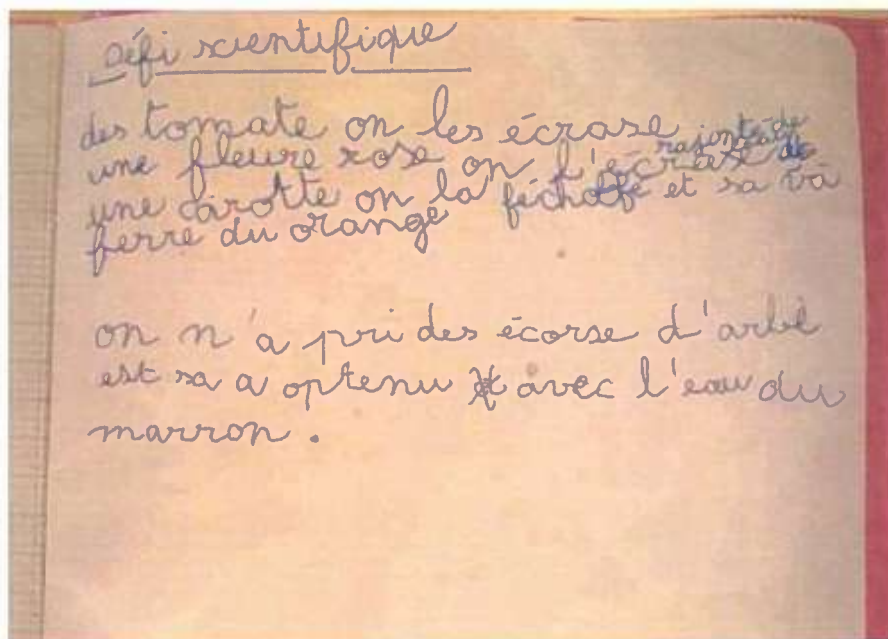 Défi scientifique
des tomate on les écrase
une fleure rose on l'écrase rajouté de
une carotte on la féchofé et sa va
ferre du orange
on n'a pri des écorse d'arbe
est sa a optenu avec l'eau du
marron.